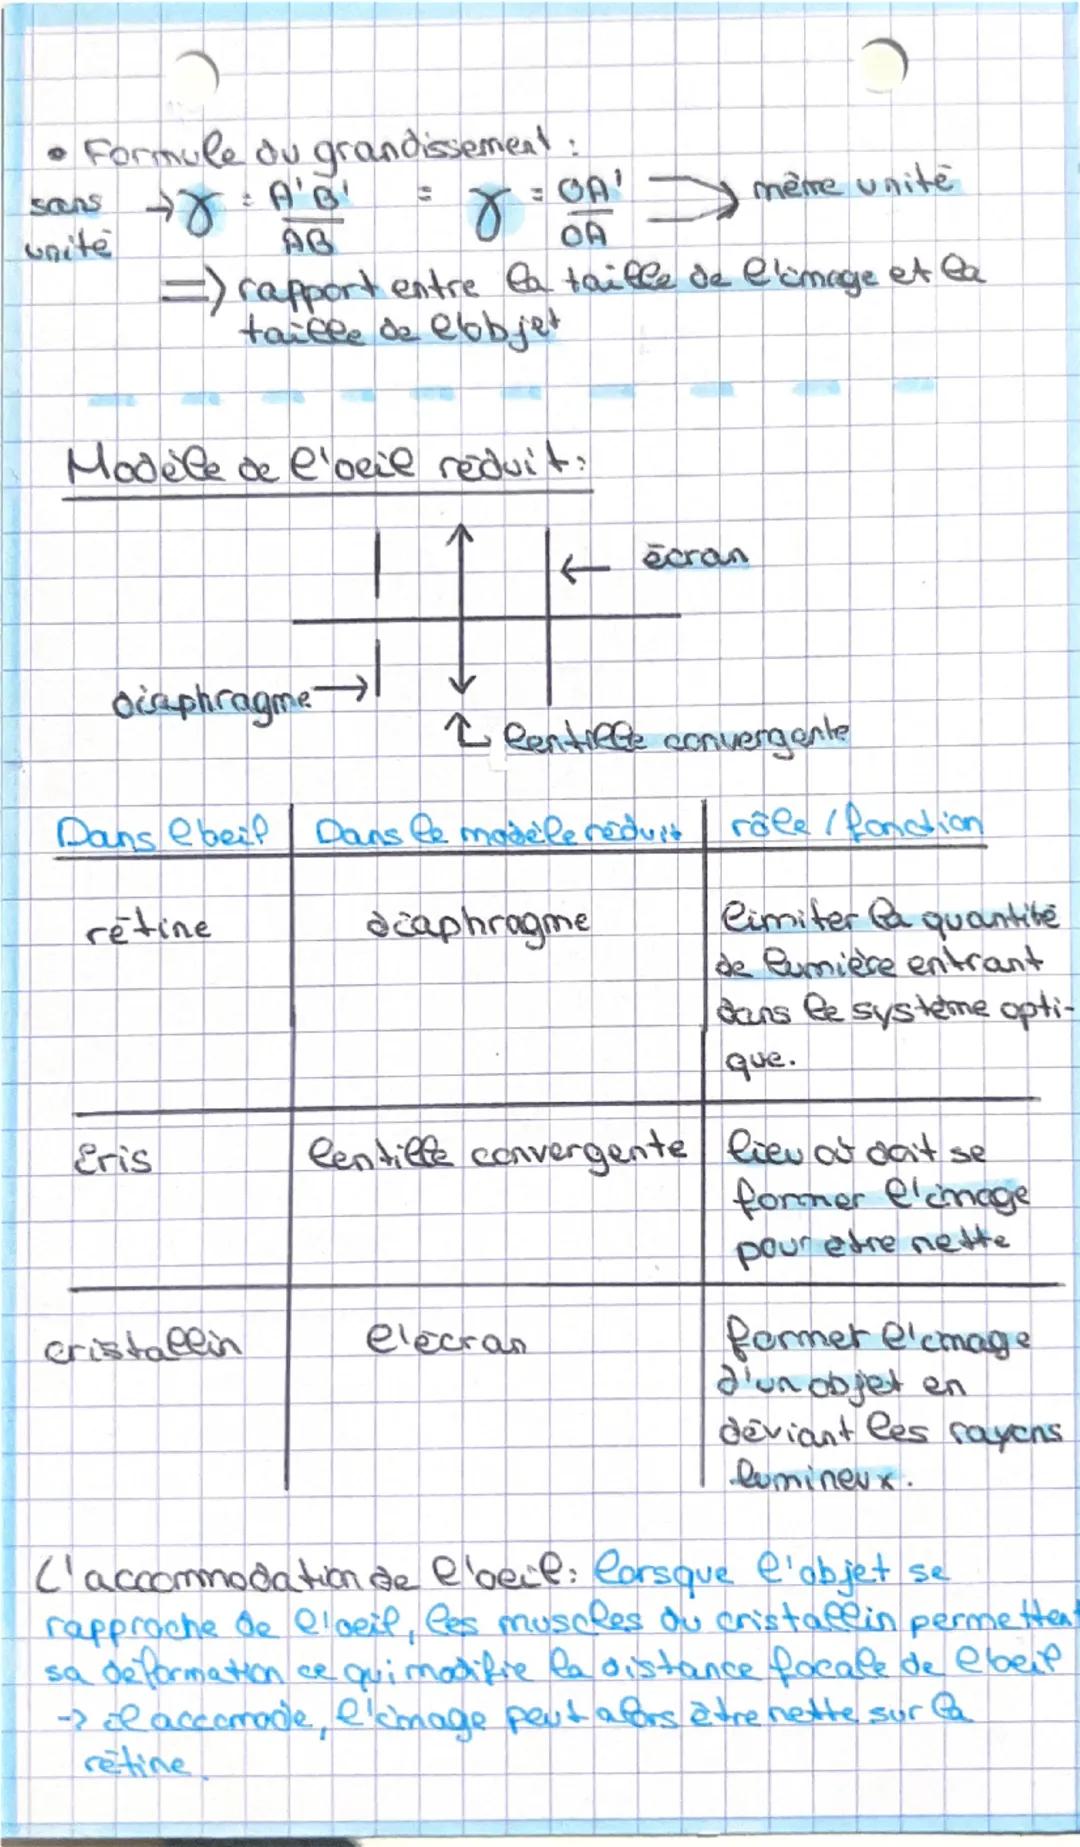 • Formule du grandissement :
sans unité → γ = A'B' / AB = γ = OA' / OA ⇒ même unité
=> rapport entre la taille de l'image et la
taille de l'objet
Modèle de l'oeil réduit :
← écran
diaphragme →
↑ lentille convergente
Dans l'oeil | Dans le modèle réduit | rôle / fonction
rétine | diaphragme | limiter la quantité
de lumière entrant
dans le système opti-
que.
iris | lentille convergente | lieu où doit se
former l'image
pour etre nette
cristallin | l'écran | former l'image
d'un objet en
déviant les rayons
lumineux.
L'accommodation de l'oeil : lorsque l'objet se
rapproche de l'oeil, les muscles du cristallin permettent
sa déformation ce qui modifie la distance focale de l'oeil
-> il accomode, l'image peut alors être nette sur la
rétine.